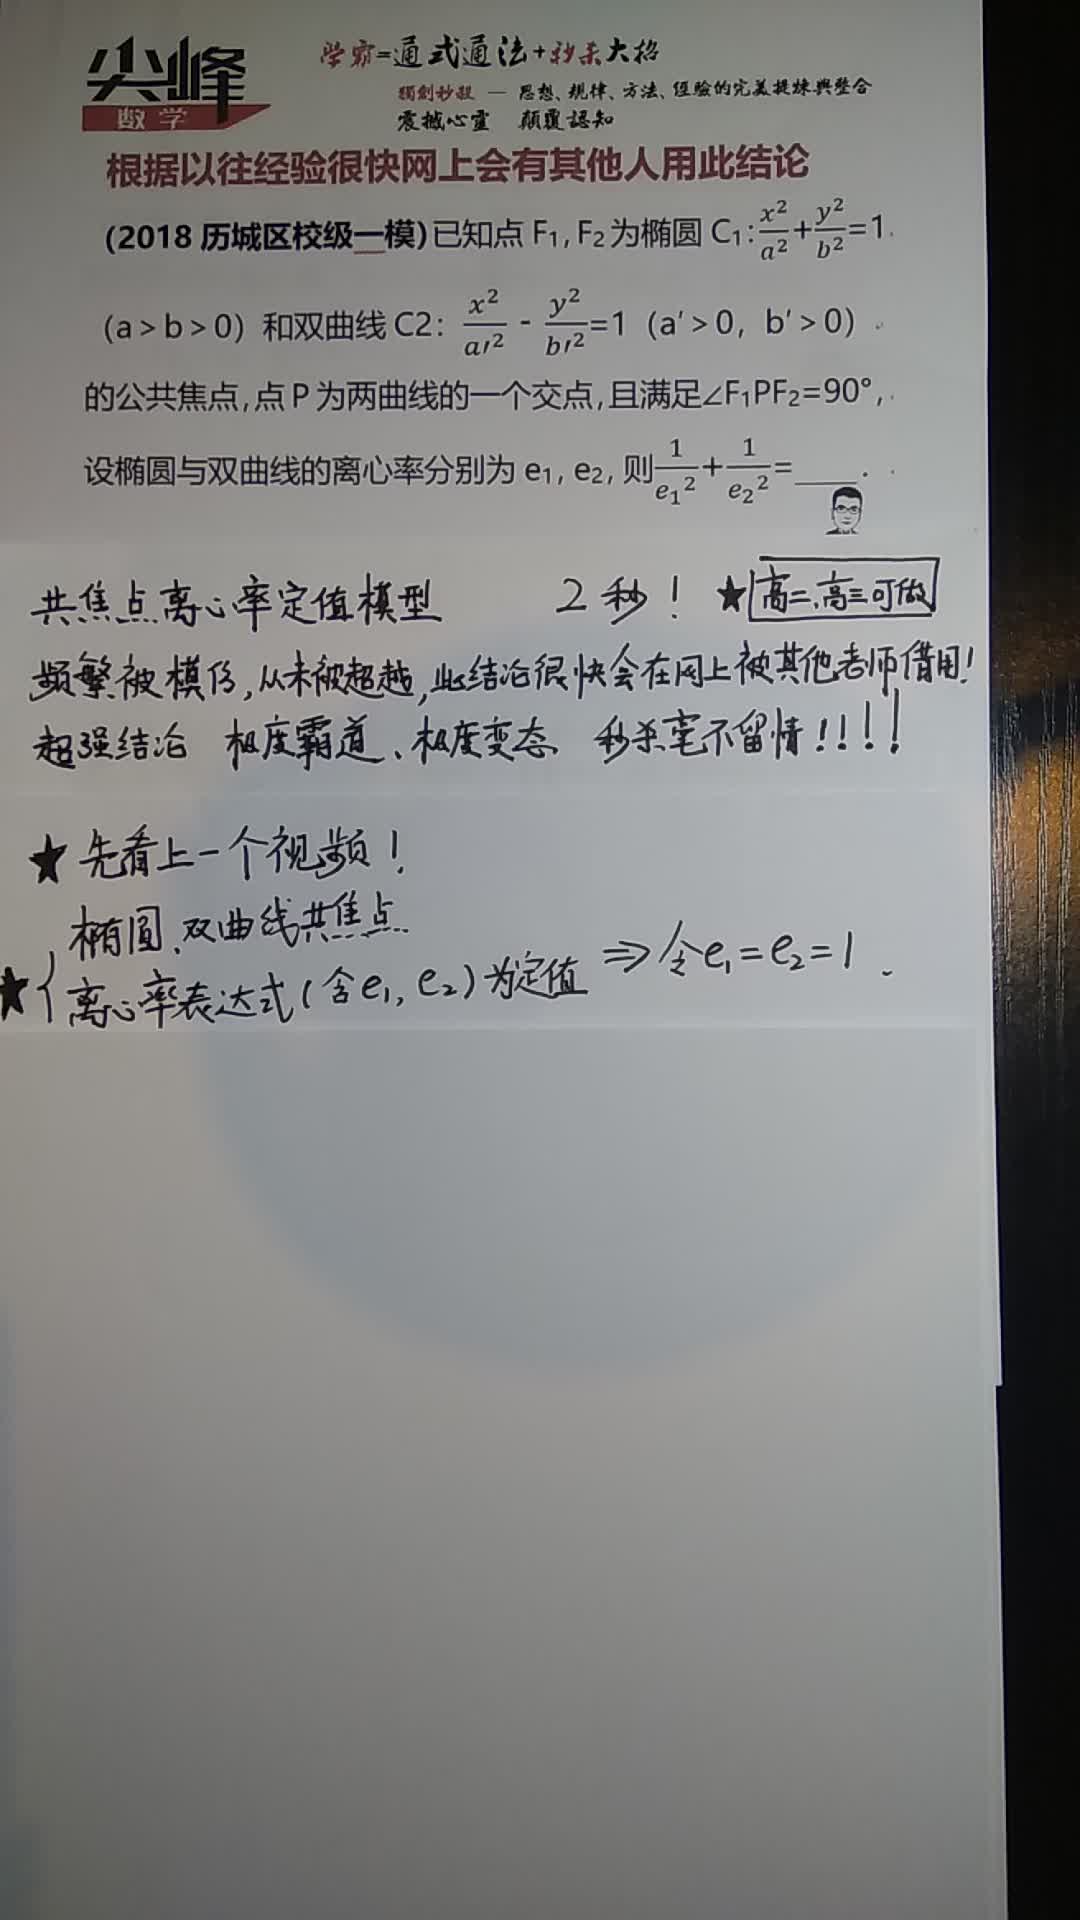 尖峰
数学
学霸=通式通法+秒杀大招
獨創秒殺 — 思想、规律、方法、经验的完美提煉與整合
震撼心靈 顛覆認知
根据以往经验很快网上会有其他人用此结论
(2018 历城区校级一模)已知点 F₁, F₂ 为椭圆 C₁: x²/a² + y²/b² =1
(a>b>0) 和双曲线 C2: x²/a′² - y²/b′² =1 (a′>0, b′>0)
的公共焦点,点 P 为两曲线的一个交点,且满足∠F₁PF₂=90°,
设椭圆与双曲线的离心率分别为 e₁, e₂, 则 1/e₁² + 1/e₂² =____.
共焦点离心率定值模型 2秒! ★ 高二、高三可做
频繁被模仿,从未被超越,此结论很快会在网上被其他老师借用!
超强结论 极度霸道、极度变态 秒杀毫不留情!!!!
★ 先看上一个视频!
椭圆、双曲线共焦点
★ { 离心率表达式(含e₁, e₂)为定值 ⇒ 令e₁=e₂=1.